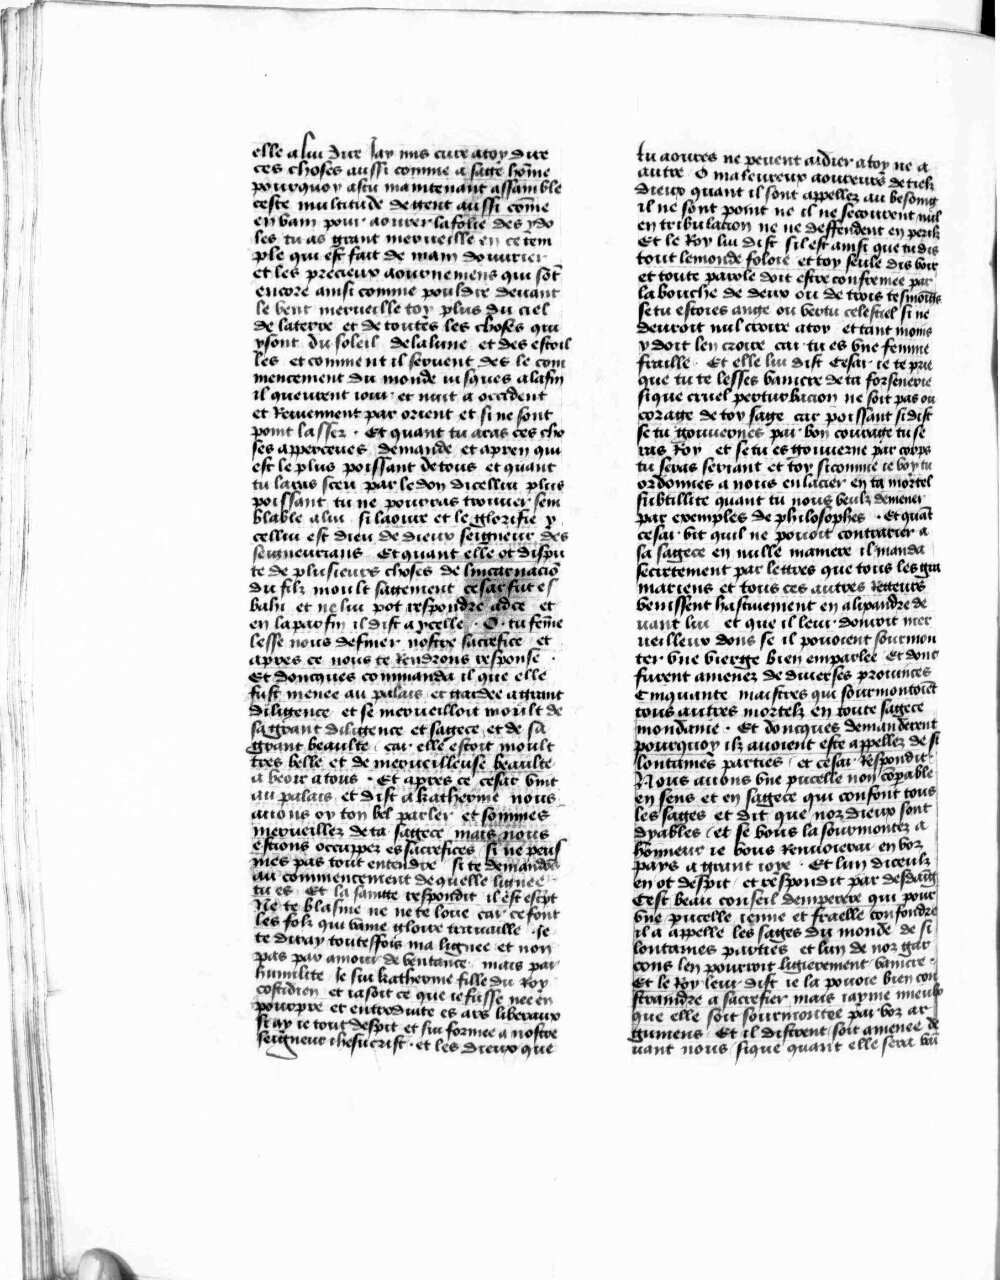 elle a lui dire Jay mis cure a toy dire
ces choses aussi comme a sage hõme
pourquoy as tu maintenant assamble
ceste multitude de gent aussi cõme
en vain pour aourer la folie des ydo
les tu as grant merveille en ce tem
ple qui est fait de main douvrier
et les precieux aournemens qui sõt
encore ainsi comme pouldre devant
le vent merveille toy plus du ciel
de la terre et de toutes les choses qui
y sont du soleil de la lune et des estoil
les et comment il servent des le com
mencement du monde iusques a la fin
il queurent iour et nuit a occident
et Reviennent par orient et si ne sont
point lassez . Et quant tu aras ces cho
ses apperceues demande et apren qui
est le plus poissant de tous et quant
tu laras sceu par le don dicellui plus
poissant tu ne pourras trouver sem
blable a lui si laoure et le glorifie
cellui est dieu de dieux seigneur des
seigneurians Et quant elle ot dispu
te de plusieurs choses de lincarnaciõ
du filz moult sagement cesar fut es
bahi et ne lui pot respondre ad ce et
en la parfin il dist a ycelle . O . tu fẽme
lesse nous definer nostre sacrefice et
apres ce nous te Rendrons response .
Et doncques commanda il que elle
fust menee au palais et gardee a grant
diligence et se merveilloit moult de
sa grant diligence et sagece et de sa
grant beaulte car elle estoit moult
tres belle et de merveilleuse beaulte
a veoir a tous . Et apres ce cesar vint
au palais et dist a katherine nous
avons oy ton bel parler et sommes
merveillez de ta sagece mais nous
estions occuppez es sacrefices si ne peus
mes pas tout entendre si te demandõs
au commencement de quelle lignee
tu es Et la sainte respondit il est escpt
Ne te blasme ne ne te loue car ce font
les folz qui vaine gloire travaille Je
te diray touteffois ma lignee et non
pas par amour de ventance mais par
humilite Je sui katherine fille du Roy
costidien et ia soit ce que ie fusse nee en
pourpre et entroduite es ars liberaux
si ay ie tout despit et sui formee a nostre
seigneur ihesucrist . et les dieux que
tu aoures ne peuent aidier a toy ne a
autre O maleureux aoureurs de telz
dieux quant il sont appellez au besoing
il ne sont point ne il ne secourent nul
en tribulacion ne ne deffendent en perilz
Et le Roy lui dist sil est ainsi que tu dis
tout le monde foloie et toy seule dis voir
et toute parole doit estre confirmee par
la bouche de deux ou de trois tesmoĩgs
se tu estoies ange ou vertu celestiel si ne
devroit nul croire a toy et tant moins
y doit len croire car tu es vne femme
fraille . Et elle lui dist Cesar ie te prie
que tu te lesses vaincre de ta forsenerie
si que cruel perturbacion ne soit pas ou
corage de toy sage car poissant si dist
se tu gouvernes par bon courage tu se
ras Roy et se tu es gouverne par corps
tu seras servant et toy si comme ie voy tu
ordonnes a nous enlacier en ta mortel
subtillite quant tu nous veulz demener
par exemples de philosophes . Et quãt
cesar vit quil ne povoit contrarier a
sa sagece en nulle maniere il manda
secretement par lettres que tous les gra
mariens et tous ces autres Retteurs
venissent hastivement en alipandre de
vant lui et que il leur donroit mer
veilleux dons se il povoient sourmon
ter vne vierge bien emparlee Et donc
furent amenez de diverses provinces
Cinquante maistres qui sourmontoiẽt
tous autres mortelz en toute sagece
mondaine . Et doncques demanderent
pourquoy ilz avoient este appellez de si
lontaines parties et cesar Respondit
Nous avons vne pucelle non cõpable
en sens et en sagece qui confont tous
les sages et dit que noz dieux sont
dyables et se vous la sourmontez a
hõnneur ie vous Renvoierai en voz
pays a grant ioye . Et lun diceulz
en ot despit et respondit par desdaing
Cest beau conseil demperere qui pour
vne pucelle ienne et fraelle confondre
il a appelle les sages du monde de si
lontaines parties et lun de noz gar
cons len pourroit ligierement vaincre .
Et le Roy leur dist ie la povoie bien con
straindre a sacrefier mais iayme mieulx
que elle soit sourmontee par voz ar
gumens Et il distrent soit amenee de
vant nous si que quant elle sera vai